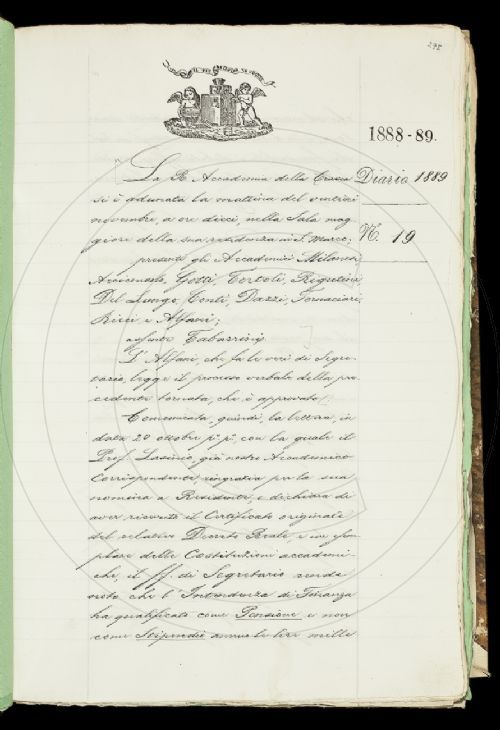 1888-89.
La R. Accademia della Crusca
si è adunata la mattina del ventisei
novembre, a ore dieci, nella Sala mag-
giore della sua residenza in S. Marco:
presenti gli Accademici Milanesi,
Gotti, Tortoli, Rigutini,
Del Lungo, Conti, Dazzi, Fornaciari,
Ricci e Alfani;
assente Tabarrini.
L'Alfani, che fa le veci di Segre-
tario, legge il processo verbale della pre-
cedente tornata, che è approvato.
Comunicata, quindi, la lettera, in
data 20 ottobre p. p., con la quale il
Prof. Lasinio, già nostro Accademico
Corrispondente, ringrazia per la sua
nomina a Residente, e dichiara di
aver ricevuto il Certificato originale
del relativo Decreto Reale, e un esem-
plare delle Costituzioni accademi-
che, il ff. di Segretario rende
noto che l'Intendenza di Finanza
ha qualificato come Pensione e non
come Stipendio annue lire mille
Diario 1889
N. 19